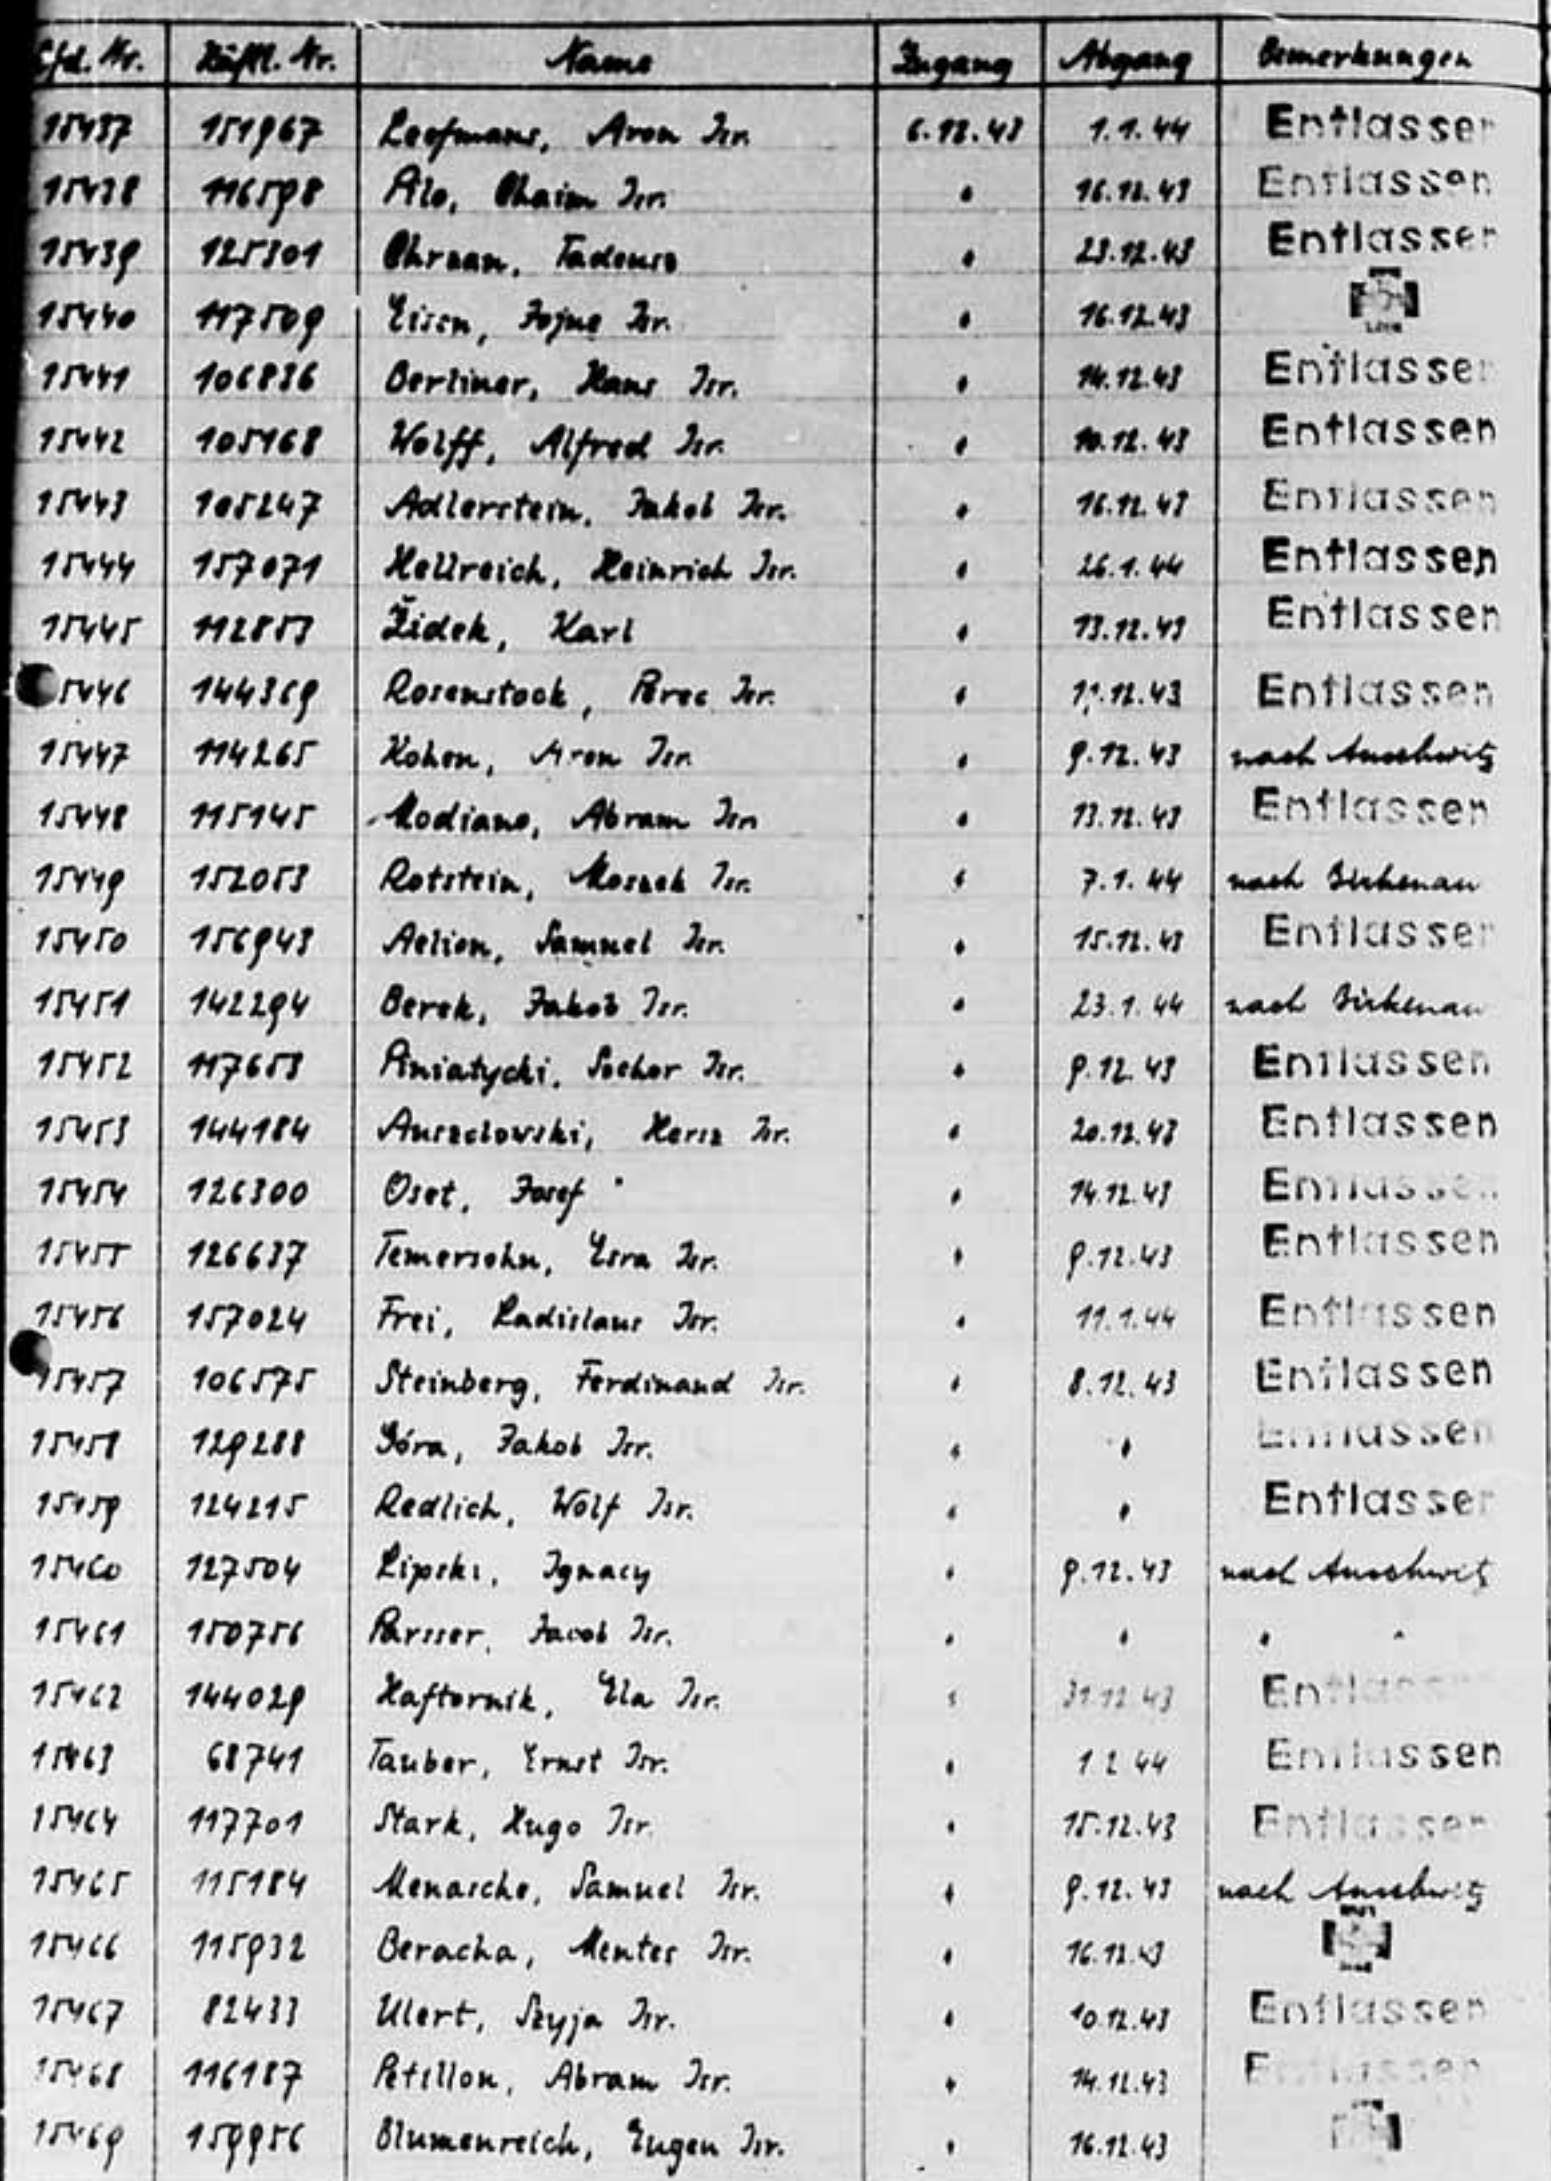 Lfd. Nr. Häftl. Nr. Name Zugang Abgang Bemerkungen
15437 151967 Leefmans, Aron Isr. 6.12.43 1.1.44 Entlassen
15438 116598 Pilo, Chaim Isr. " 16.12.43 Entlassen
15439 125301 Chrzan, Tadeusz " 23.12.43 Entlassen
15440 117509 Eisen, Fojne Isr. " 16.12.43
15441 106836 Berliner, Hans Isr. " 14.12.43 Entlassen
15442 105168 Wolff, Alfred Isr. " 10.12.43 Entlassen
15443 105247 Adlerstein, Jakob Isr. " 16.12.43 Entlassen
15444 157071 Hellreich, Heinrich Isr. " 26.1.44 Entlassen
15445 112853 Židek, Karl " 13.12.43 Entlassen
15446 144369 Rosenstock, Perec Isr. " 11.12.43 Entlassen
15447 114265 Kohen, Aron Isr. " 9.12.43 nach Auschwitz
15448 115145 Modiano, Abram Isr. " 13.12.43 Entlassen
15449 152053 Rotstein, Moszek Isr. " 7.1.44 nach Birkenau
15450 156943 Aelion, Samuel Isr. " 15.12.43 Entlassen
15451 142294 Berek, Jakob Isr. " 23.1.44 nach Birkenau
15452 117653 Piniatycki, Sochor Isr. " 9.12.43 Entlassen
15453 144184 Anszelowski, Hersz Isr. " 20.12.43 Entlassen
15454 126300 Oset, Josef " 14.12.43 Entlassen
15455 126637 Temersohn, Esra Isr. " 9.12.43 Entlassen
15456 157024 Frei, Ladislaus Isr. " 11.1.44 Entlassen
15457 106575 Steinberg, Ferdinand Isr. " 8.12.43 Entlassen
15458 129288 Góra, Jakob Isr. " " Entlassen
15459 124215 Redlich, Wolf Isr. " " Entlassen
15460 127504 Lipski, Ignacy " 9.12.43 nach Auschwitz
15461 150756 Parsser, Jacob Isr. " " " "
15462 144029 Haftornik, Ela Isr. " 31.12.43 Entlassen
15463 68741 Tauber, Ernst Isr. " 1.2.44 Entlassen
15464 117701 Stark, Hugo Isr. " 15.12.43 Entlassen
15465 115184 Menasche, Samuel Isr. " 9.12.43 nach Auschwitz
15466 115932 Beracha, Mentes Isr. " 16.12.43
15467 82433 Ulert, Szyja Isr. " 10.12.43 Entlassen
15468 116187 Petillon, Abram Isr. " 14.12.43 Entlassen
15469 159956 Blumenreich, Eugen Isr. " 16.12.43